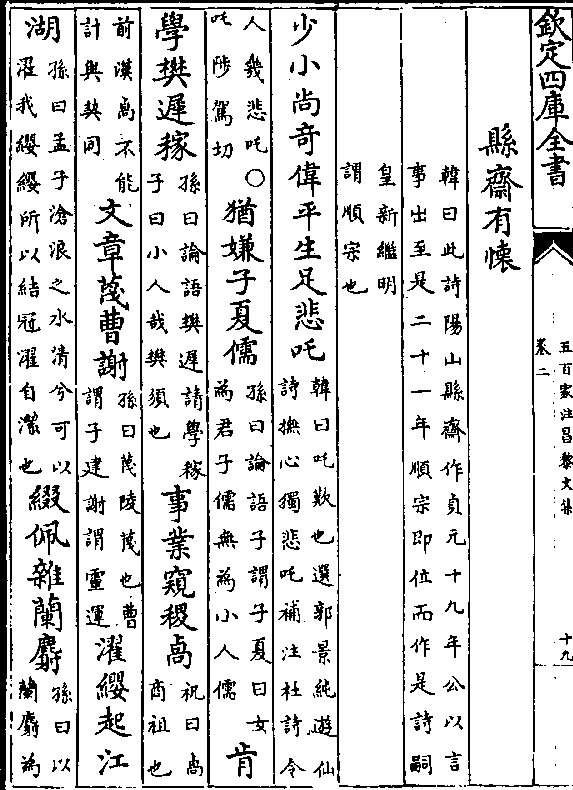 欽定四庫全書
五百家注昌黎文集
卷二
十九
縣齋有懷
韓曰此詩陽山縣齋作貞元十九年公以言
事出至是二十一年順宗即位而作是詩嗣
皇新繼明
謂順宗也
少小尚奇偉平生足悲吒
韓曰吒歎也選郭景純遊仙
詩撫心獨悲吒補注杜詩令
人幾悲吒○
吒陟駕切
猶嫌子夏儒
孫曰論語子謂子夏曰女
為君子儒無為小人儒
肯
學樊遲稼
孫曰論語樊遲請學稼
子曰小人哉樊須也
事業窺稷卨
祝曰卨
商祖也
前漢卨不能
計與契同
文章蔑曹謝
孫曰蔑陵蔑也曹
謂子建謝謂靈運
濯纓起江
湖
孫曰孟子滄浪之水清兮可以
濯我纓纓所以結冠濯自潔也
綴佩雜蘭麝
孫曰以
蘭麝為